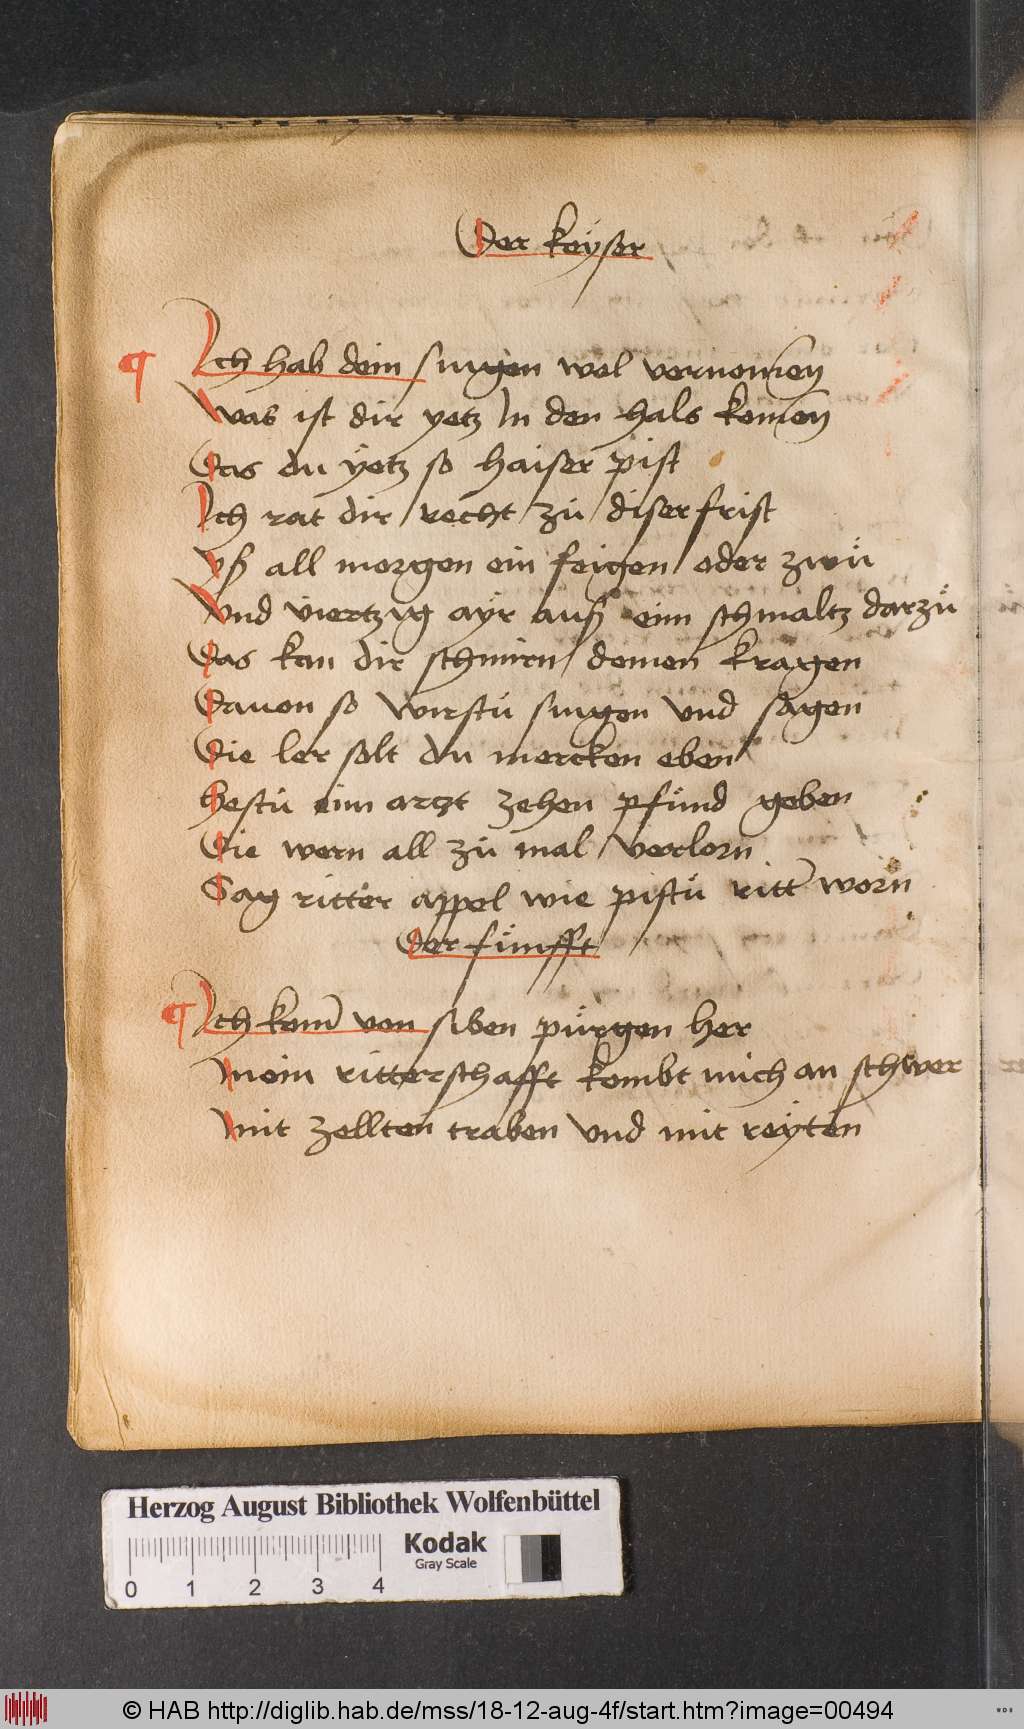 Der keÿser
¶ Ich hab dein singen wol vernomen
Was ist dir yetz In den hals komen
Das du ÿetz so haiser pist
Ich rat dir recht zu diser frist
yß all morgen ein feigen oder zwu
Vnd viertzig ayr auß eim schmaltz darzu
Das kan dir schmirn deinen kragen
Dauon so wirstu singen vnd sagen
Die ler solt du mercken eben
hestu eim arczt zehen pfund geben
Die wern all zu mal verlorn
Sag ritter appel wie pistu ritter worn
Der fünfft
¶ Ich kom von siben pürgen her
mein ritterschafft kombt mich an schwer
mit zellten traben vnd mit reÿten
Herzog August Bibliothek Wolfenbüttel
Kodak
Gray Scale
0 1 2 3 4
© HAB http://diglib.hab.de/mss/18-12-aug-4f/start.htm?image=00494